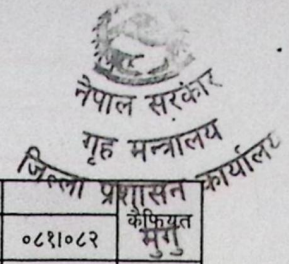 नेपाल सरकार
गृह मन्त्रालय
जिल्ला प्रशासन कार्यालय
मुगु
कैफियत
०८१।०८२